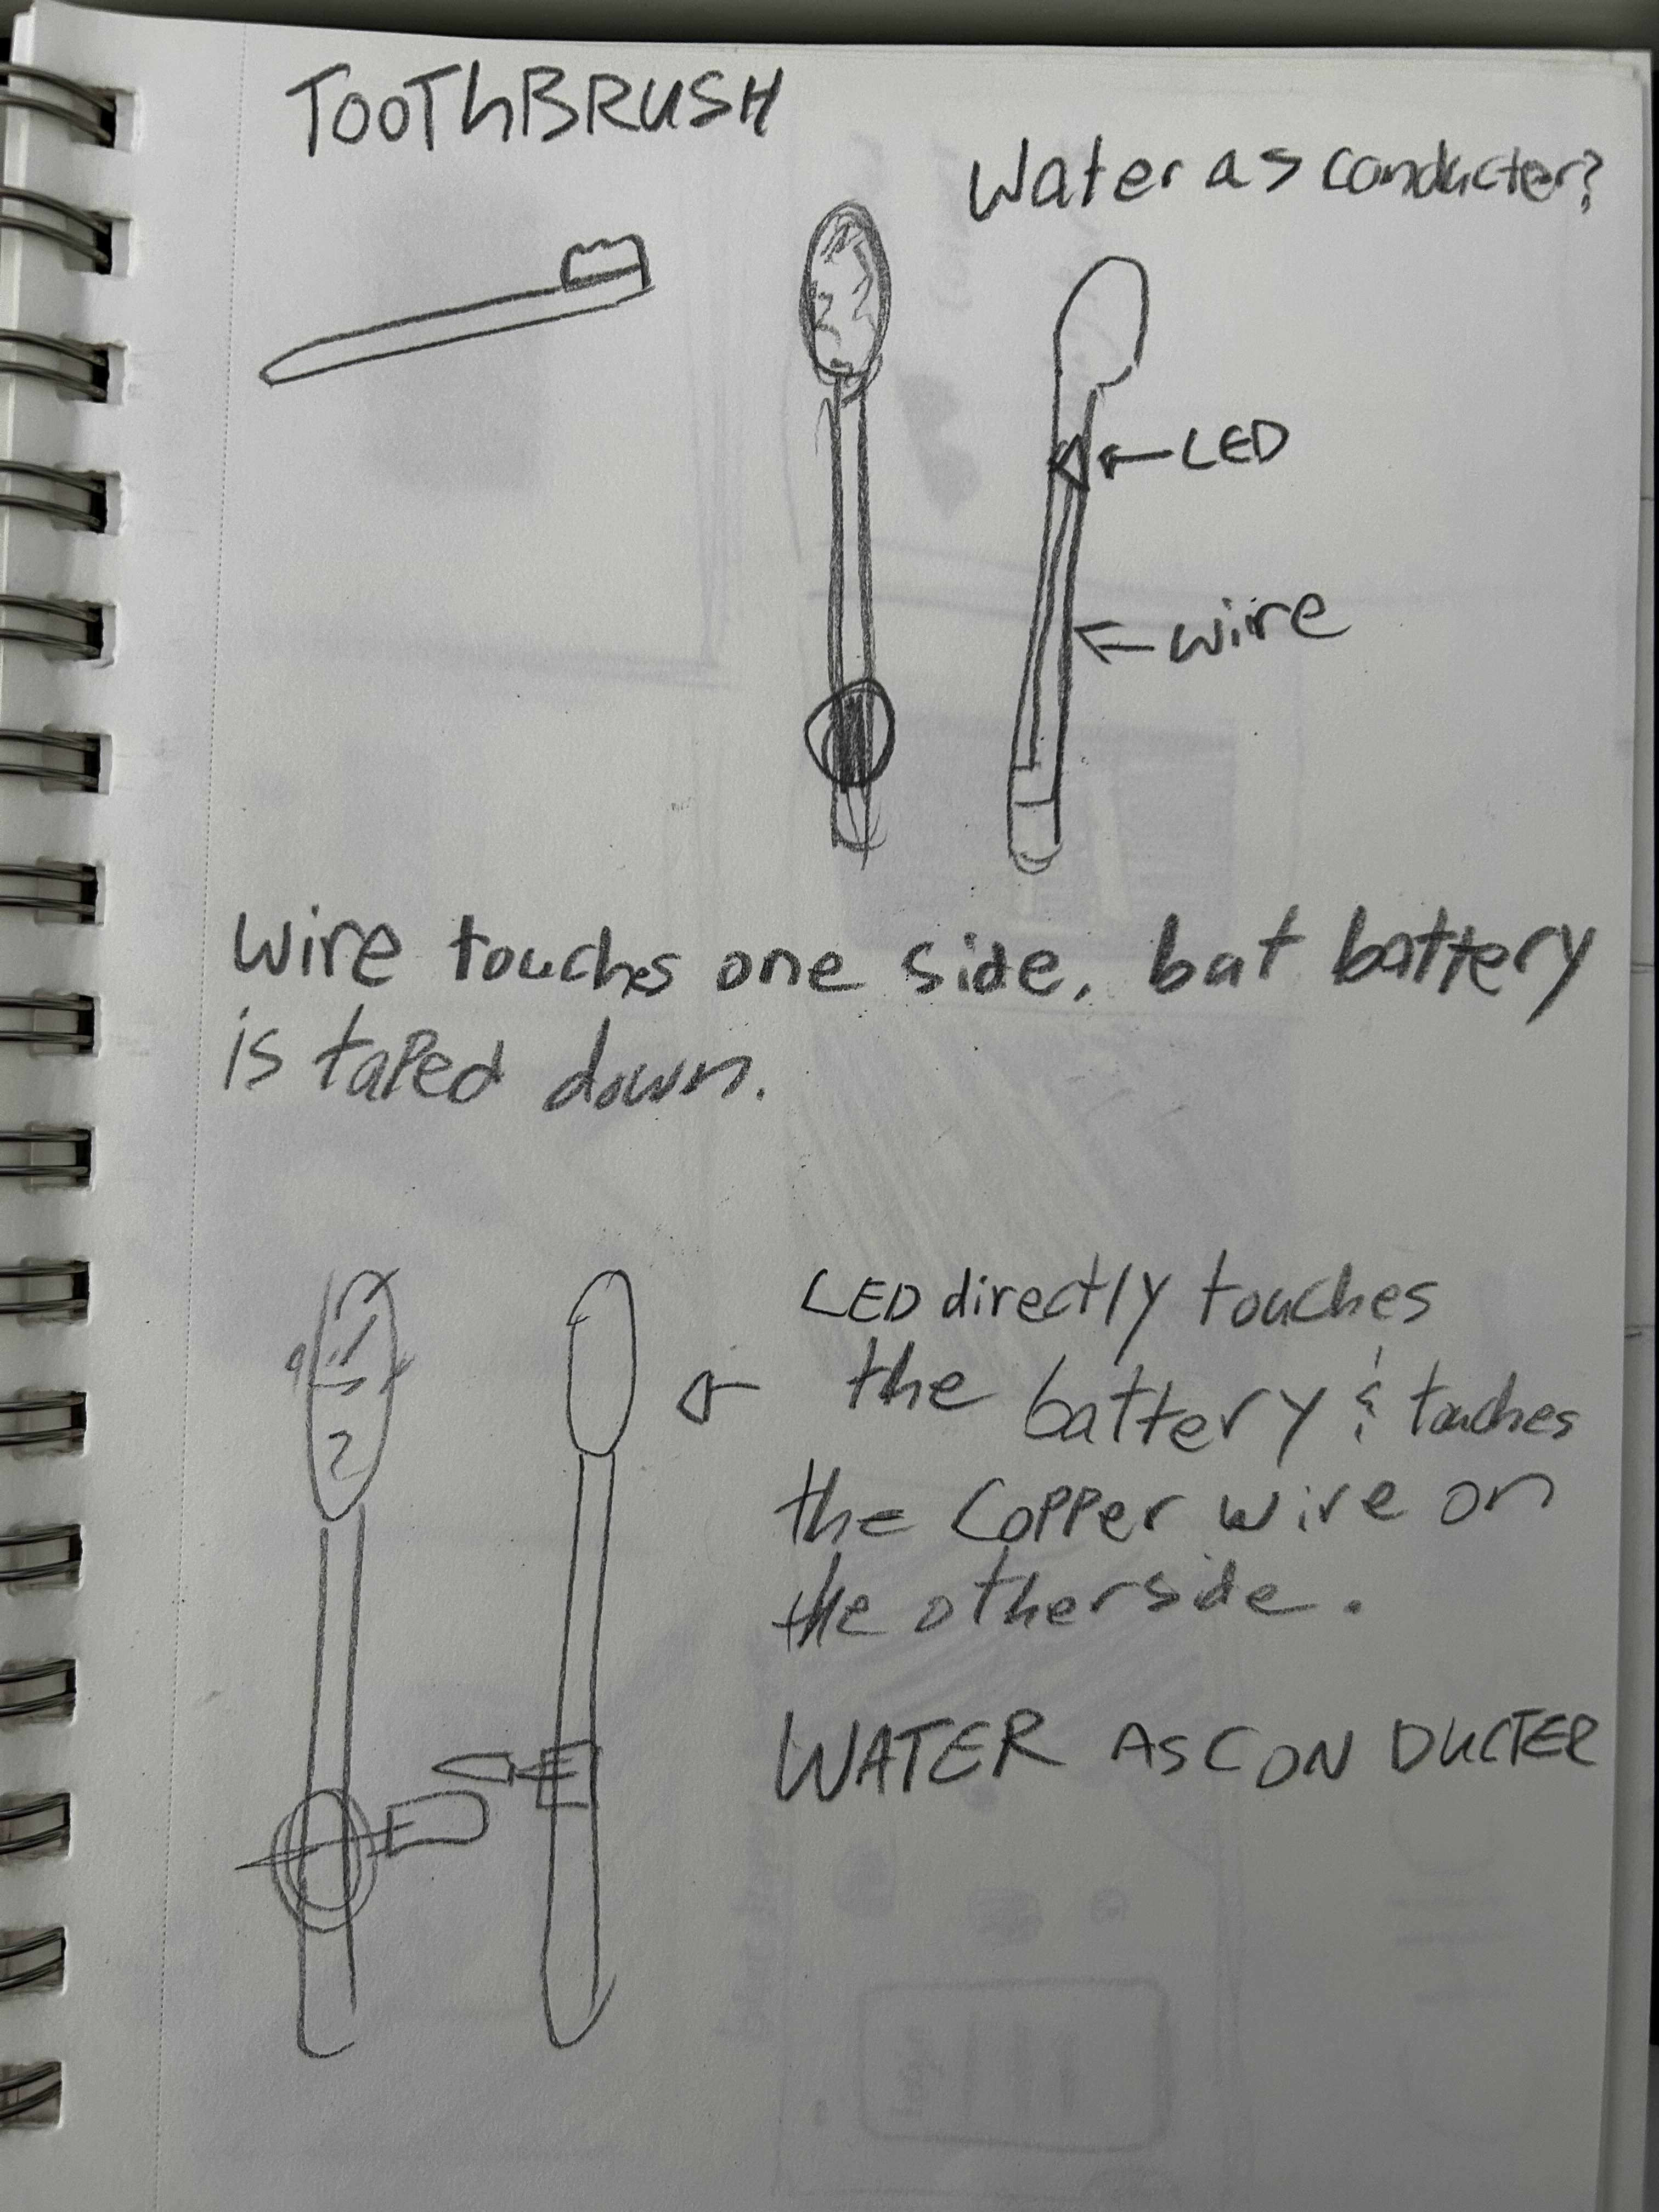 TOOThBRUSH
Water as conducter?
LED
wire
wire touches one side, but battery
is taped down.
LED directly touches
the battery & touches
the copper wire on
the otherside.
WATER AS CON DUCTER